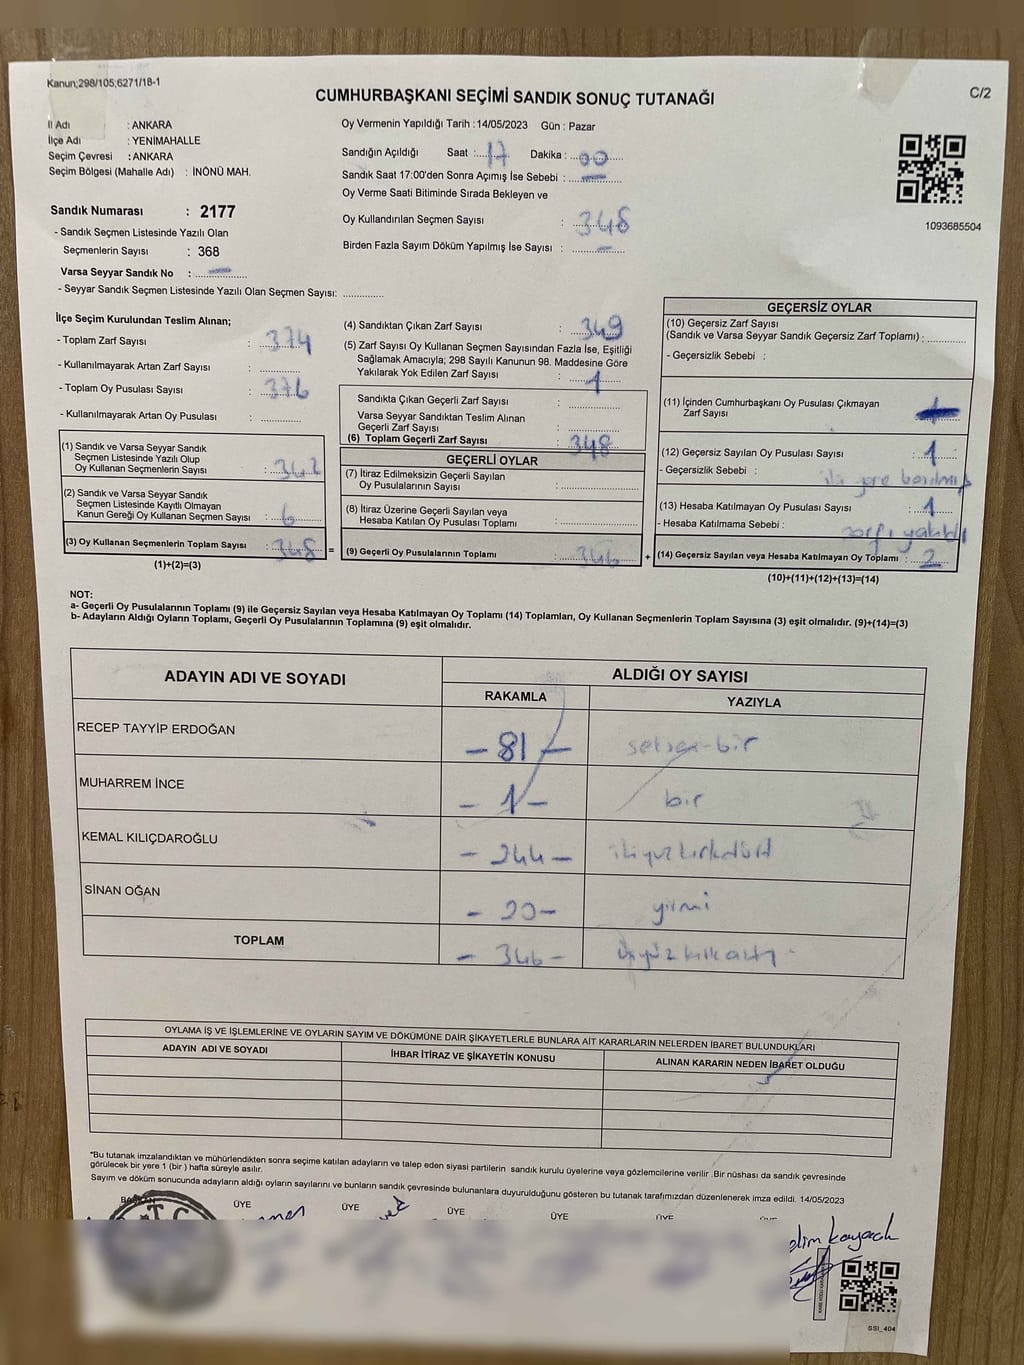 Kanun;298/105;6271/18-1
CUMHURBAŞKANI SEÇİMİ SANDIK SONUÇ TUTANAĞI
C/2
İl Adı : ANKARA
İlçe Adı : YENİMAHALLE
Seçim Çevresi : ANKARA
Seçim Bölgesi (Mahalle Adı) : İNÖNÜ MAH.
Sandık Numarası : 2177
- Sandık Seçmen Listesinde Yazılı Olan
Seçmenlerin Sayısı : 368
Varsa Seyyar Sandık No :
- Seyyar Sandık Seçmen Listesinde Yazılı Olan Seçmen Sayısı:
Oy Vermenin Yapıldığı Tarih :14/05/2023 Gün : Pazar
Sandığın Açıldığı Saat : 17 Dakika : 00
Sandık Saat 17:00'den Sonra Açımış İse Sebebi : —
Oy Verme Saati Bitiminde Sırada Bekleyen ve
Oy Kullandırılan Seçmen Sayısı : 348
Birden Fazla Sayım Döküm Yapılmış İse Sayısı : —
1093685504
İlçe Seçim Kurulundan Teslim Alınan;
- Toplam Zarf Sayısı : 374
- Kullanılmayarak Artan Zarf Sayısı :
- Toplam Oy Pusulası Sayısı : 376
- Kullanılmayarak Artan Oy Pusulası :
(1) Sandık ve Varsa Seyyar Sandık
Seçmen Listesinde Yazılı Olup
Oy Kullanan Seçmenlerin Sayısı : 342
(2) Sandık ve Varsa Seyyar Sandık
Seçmen Listesinde Kayıtlı Olmayan
Kanun Gereği Oy Kullanan Seçmen Sayısı : 6
(3) Oy Kullanan Seçmenlerin Toplam Sayısı : 348 =
(1)+(2)=(3)
(4) Sandıktan Çıkan Zarf Sayısı : 349
(5) Zarf Sayısı Oy Kullanan Seçmen Sayısından Fazla İse, Eşitliği
Sağlamak Amacıyla; 298 Sayılı Kanunun 98. Maddesine Göre
Yakılarak Yok Edilen Zarf Sayısı : 1
Sandıkta Çıkan Geçerli Zarf Sayısı :
Varsa Seyyar Sandıktan Teslim Alınan
Geçerli Zarf Sayısı :
(6) Toplam Geçerli Zarf Sayısı : 348
GEÇERLİ OYLAR
(7) İtiraz Edilmeksizin Geçerli Sayılan
Oy Pusulalarının Sayısı :
(8) İtiraz Üzerine Geçerli Sayılan veya
Hesaba Katılan Oy Pusulası Toplamı :
(9) Geçerli Oy Pusulalarının Toplamı : 346 +
GEÇERSİZ OYLAR
(10) Geçersiz Zarf Sayısı
(Sandık ve Varsa Seyyar Sandık Geçersiz Zarf Toplamı) :
- Geçersizlik Sebebi :
(11) İçinden Cumhurbaşkanı Oy Pusulası Çıkmayan
Zarf Sayısı
(12) Geçersiz Sayılan Oy Pusulası Sayısı : 1
- Geçersizlik Sebebi : iki yere basılmış
(13) Hesaba Katılmayan Oy Pusulası Sayısı : 1
- Hesaba Katılmama Sebebi : zarfı yakıldı
(14) Geçersiz Sayılan veya Hesaba Katılmayan Oy Toplamı : 2
(10)+(11)+(12)+(13)=(14)
NOT:
a- Geçerli Oy Pusulalarının Toplamı (9) ile Geçersiz Sayılan veya Hesaba Katılmayan Oy Toplamı (14) Toplamları, Oy Kullanan Seçmenlerin Toplam Sayısına (3) eşit olmalıdır. (9)+(14)=(3)
b- Adayların Aldığı Oyların Toplamı, Geçerli Oy Pusulalarının Toplamına (9) eşit olmalıdır.
ADAYIN ADI VE SOYADI ALDIĞI OY SAYISI
RAKAMLA YAZIYLA
RECEP TAYYİP ERDOĞAN - 81 - seksen-bir
MUHARREM İNCE - 1 - bir
KEMAL KILIÇDAROĞLU - 244 - ikiyüzkırkdört
SİNAN OĞAN - 20 - yirmi
TOPLAM - 346 - üçyüzkırkaltı -
OYLAMA İŞ VE İŞLEMLERİNE VE OYLARIN SAYIM VE DÖKÜMÜNE DAİR ŞİKAYETLERLE BUNLARA AİT KARARLARIN NELERDEN İBARET BULUNDUKLARI
ADAYIN ADI VE SOYADI İHBAR İTİRAZ VE ŞİKAYETİN KONUSU ALINAN KARARIN NEDEN İBARET OLDUĞU
*Bu tutanak imzalandıktan ve mühürlendikten sonra seçime katılan adayların ve talep eden siyasi partilerin sandık kurulu üyelerine veya gözlemcilerine verilir .Bir nüshası da sandık çevresinde
görülecek bir yere 1 (bir ) hafta süreyle asılır.
Sayım ve döküm sonucunda adayların aldığı oyların sayılarını ve bunların sandık çevresinde bulunanlara duyurulduğunu gösteren bu tutanak tarafımızdan düzenlenerek imza edildi. 14/05/2023
BAŞKAN ÜYE ÜYE ÜYE ÜYE ÜYE
T.C.
SSI_404